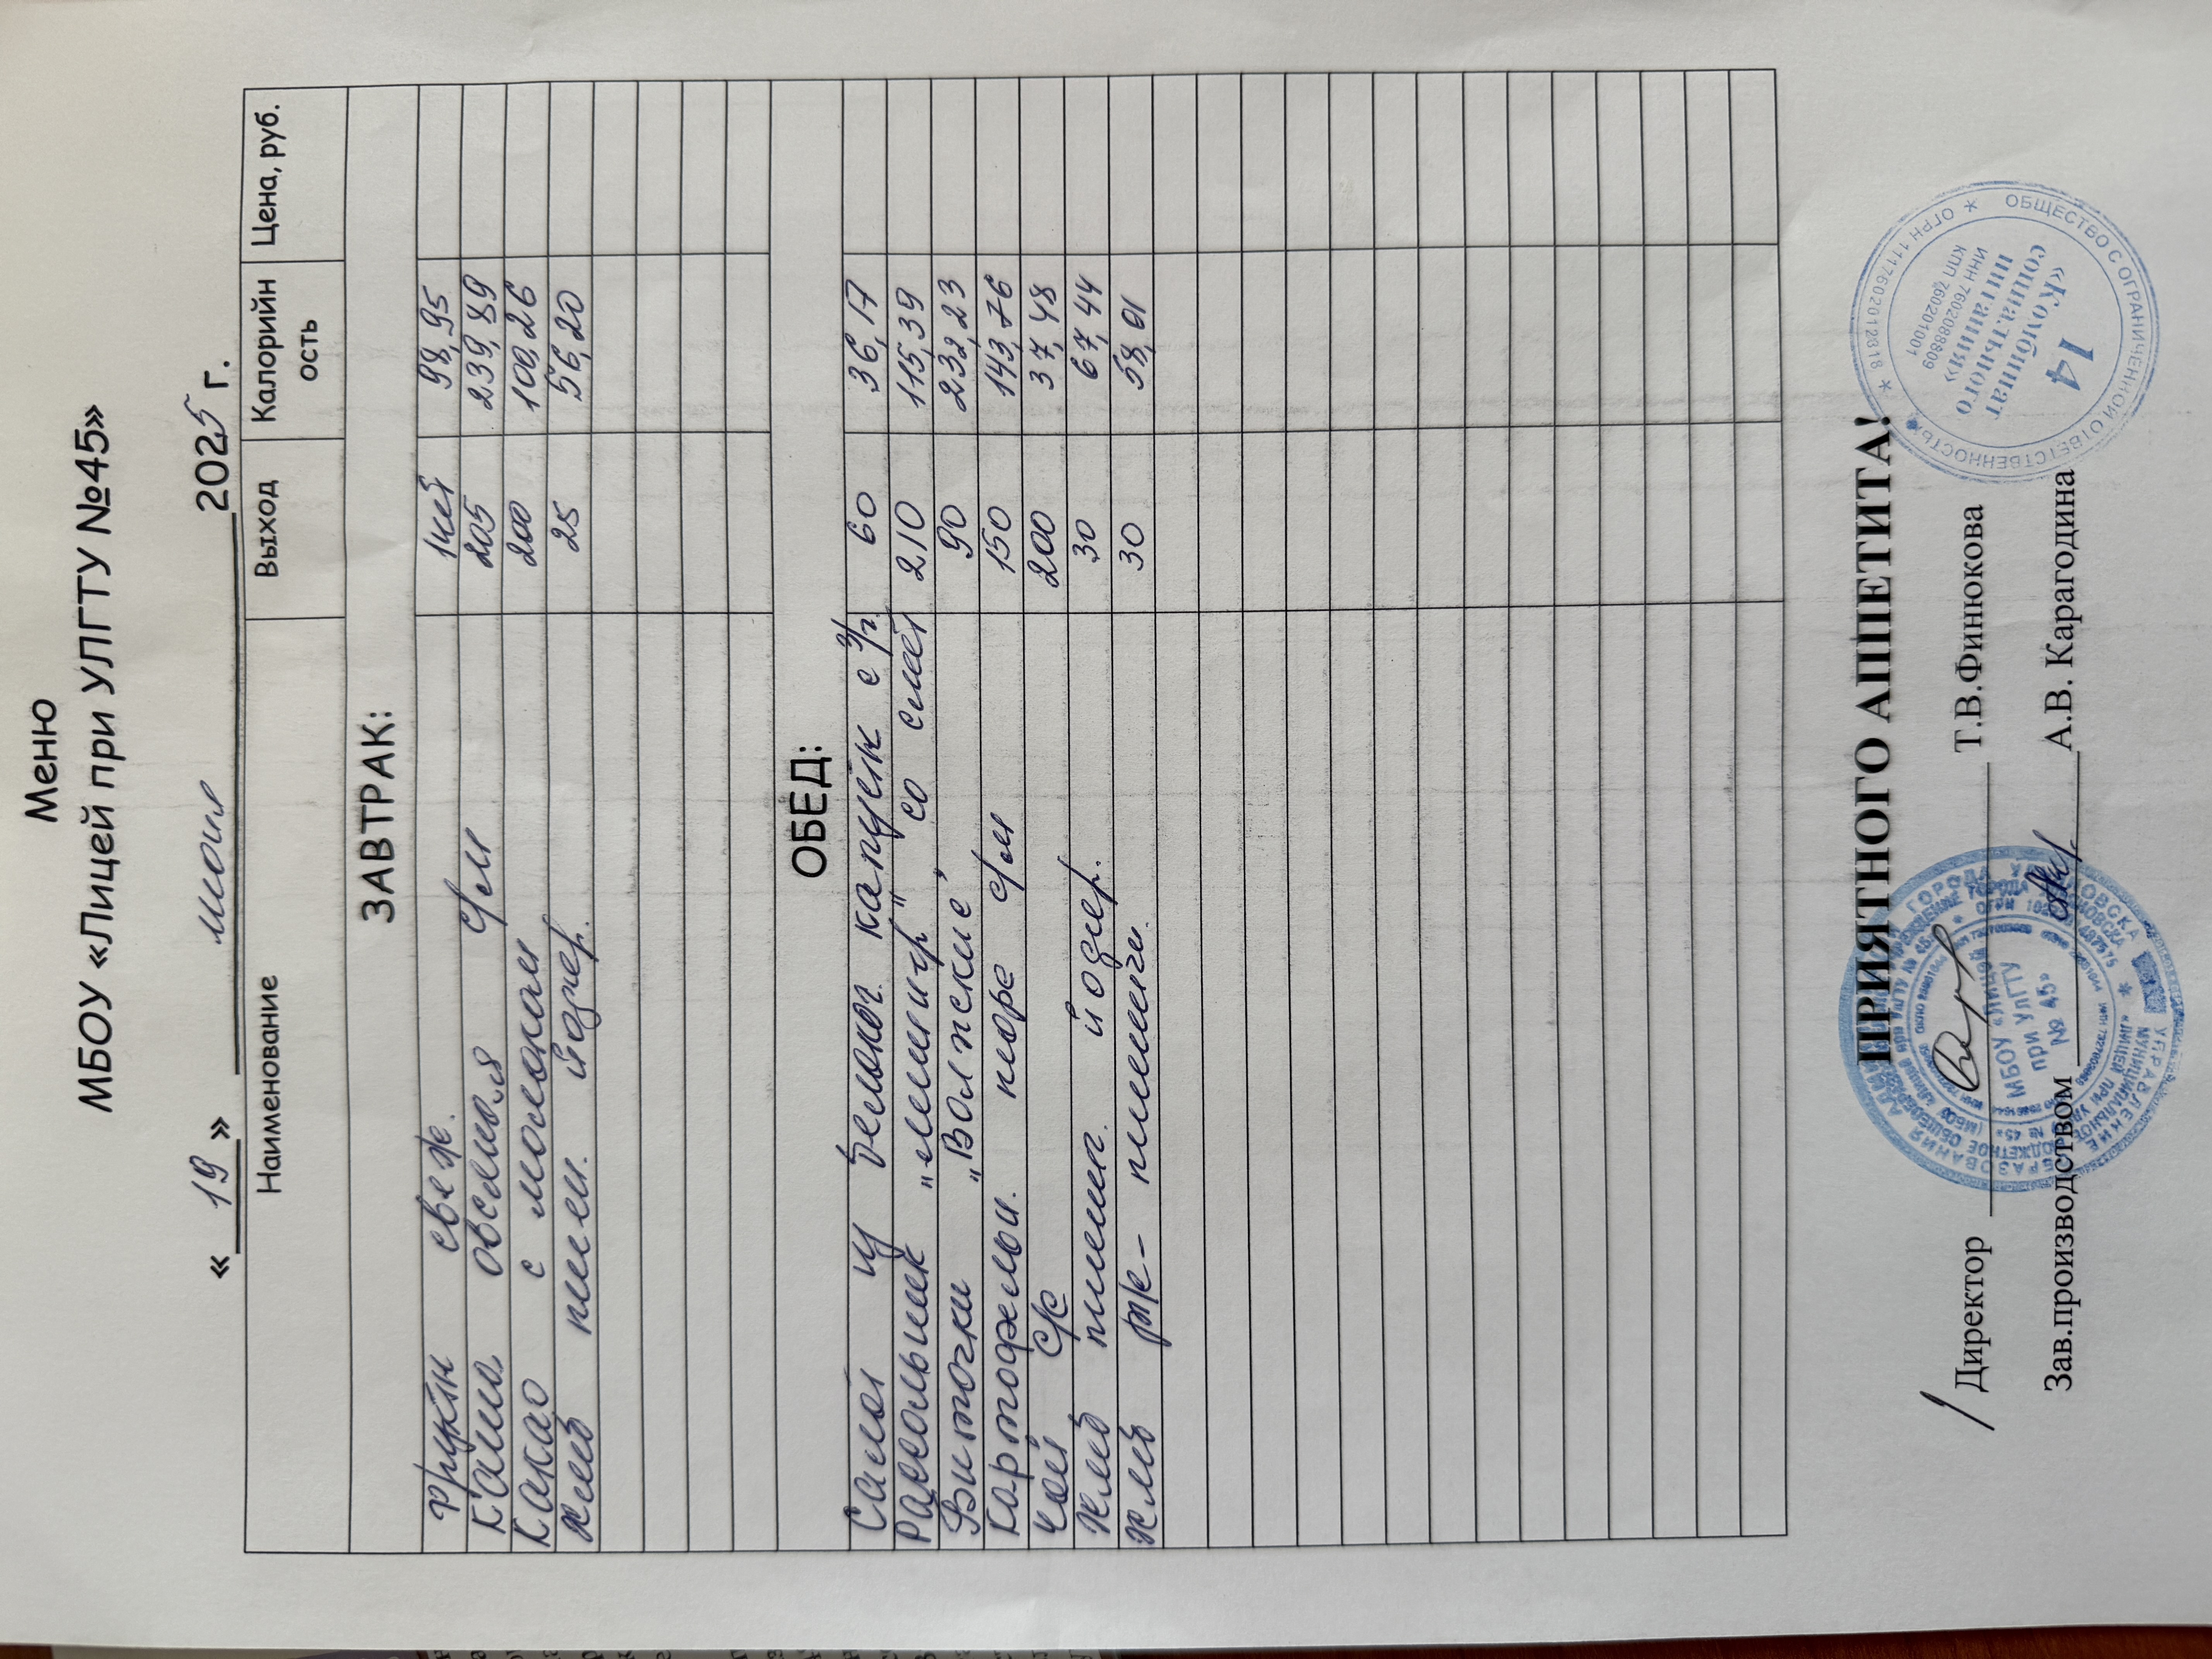 Меню
МБОУ «Лицей при УЛГТУ №45»
« 19 » мая 2025 г.
Наименование Выход Калорийн ость Цена, руб.
ЗАВТРАК:
Фрукты свеж. 1шт 98,95
Каша овсяная с/м 205 239,89
Какао с молоком 200 100,26
Хлеб пшен. йодир. 25 56,20
ОБЕД:
Салат из белокоч. капусты с р/м 60 36,17
Рассольник "ленингр" со смет 210 115,39
Биточки "Волжские" 90 232,23
Картофельн. пюре с/м 150 143,76
Чай с/с 200 37,48
Хлеб пшен. йодир. 30 67,44
Хлеб рж- пшенич. 30 58,01
ПРИЯТНОГО АППЕТИТА!
Директор Т.В.Финюкова
Зав.производством А.В. Карагодина
МБОУ «ЛИЦЕЙ
при УлГТУ
№ 45»
ОБЩЕСТВО С ОГРАНИЧЕННОЙ ОТВЕТСТВЕННОСТЬЮ
ОГРН 1117602012818
14
«Комбинат
социального
питания»
ИНН 7602088809
КПП 760201001